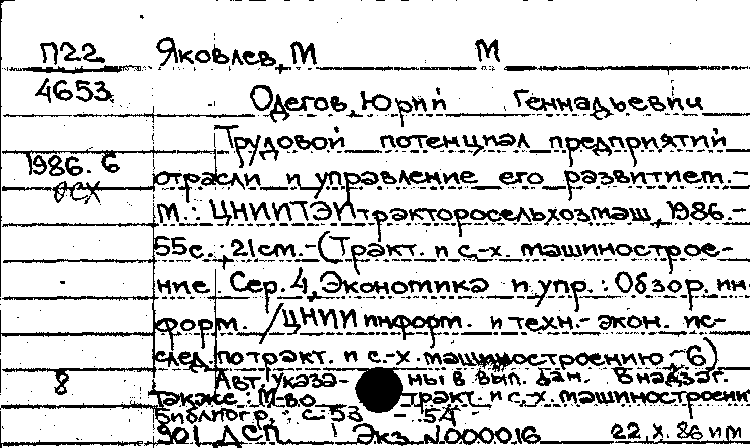 П22 Яковлев, М М
4653
Одегов, Юрий Геннадьевич
Трудовой потенциал предприятий
1986. 6
отрасли и управление его развитием.-
осх
М.: ЦНИИТЭИтракторосельхозмаш, 1986.-
55с.; 21см.-(Тракт. и с.-х. машинострое-
ние. Сер. 4, Экономика и упр.: Обзор. ин-
форм. / ЦНИИ информ. и техн.-экон. ис-
след. по тракт. и с.-х. машиностроению; 6)
8 Авт. указа- ны в вып. дан. В надзаг.
также: М-во тракт. и с.-х. машиностроени
Библиогр.: с. 53 - 54
901 ДСП Экз. N000016 22.X.86 им